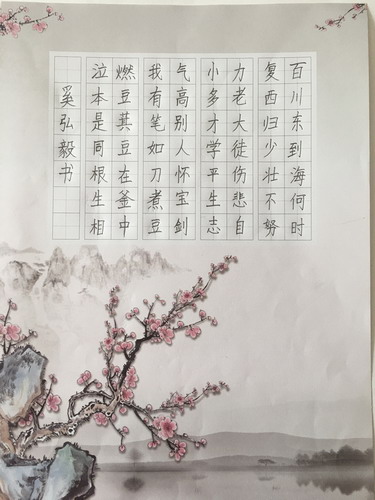 百川东到海何时
复西归少壮不努
力老大徒伤悲自
小多才学平生志
气高别人怀宝剑
我有笔如刀煮豆
燃豆萁豆在釜中
泣本是同根生相
奚弘毅书